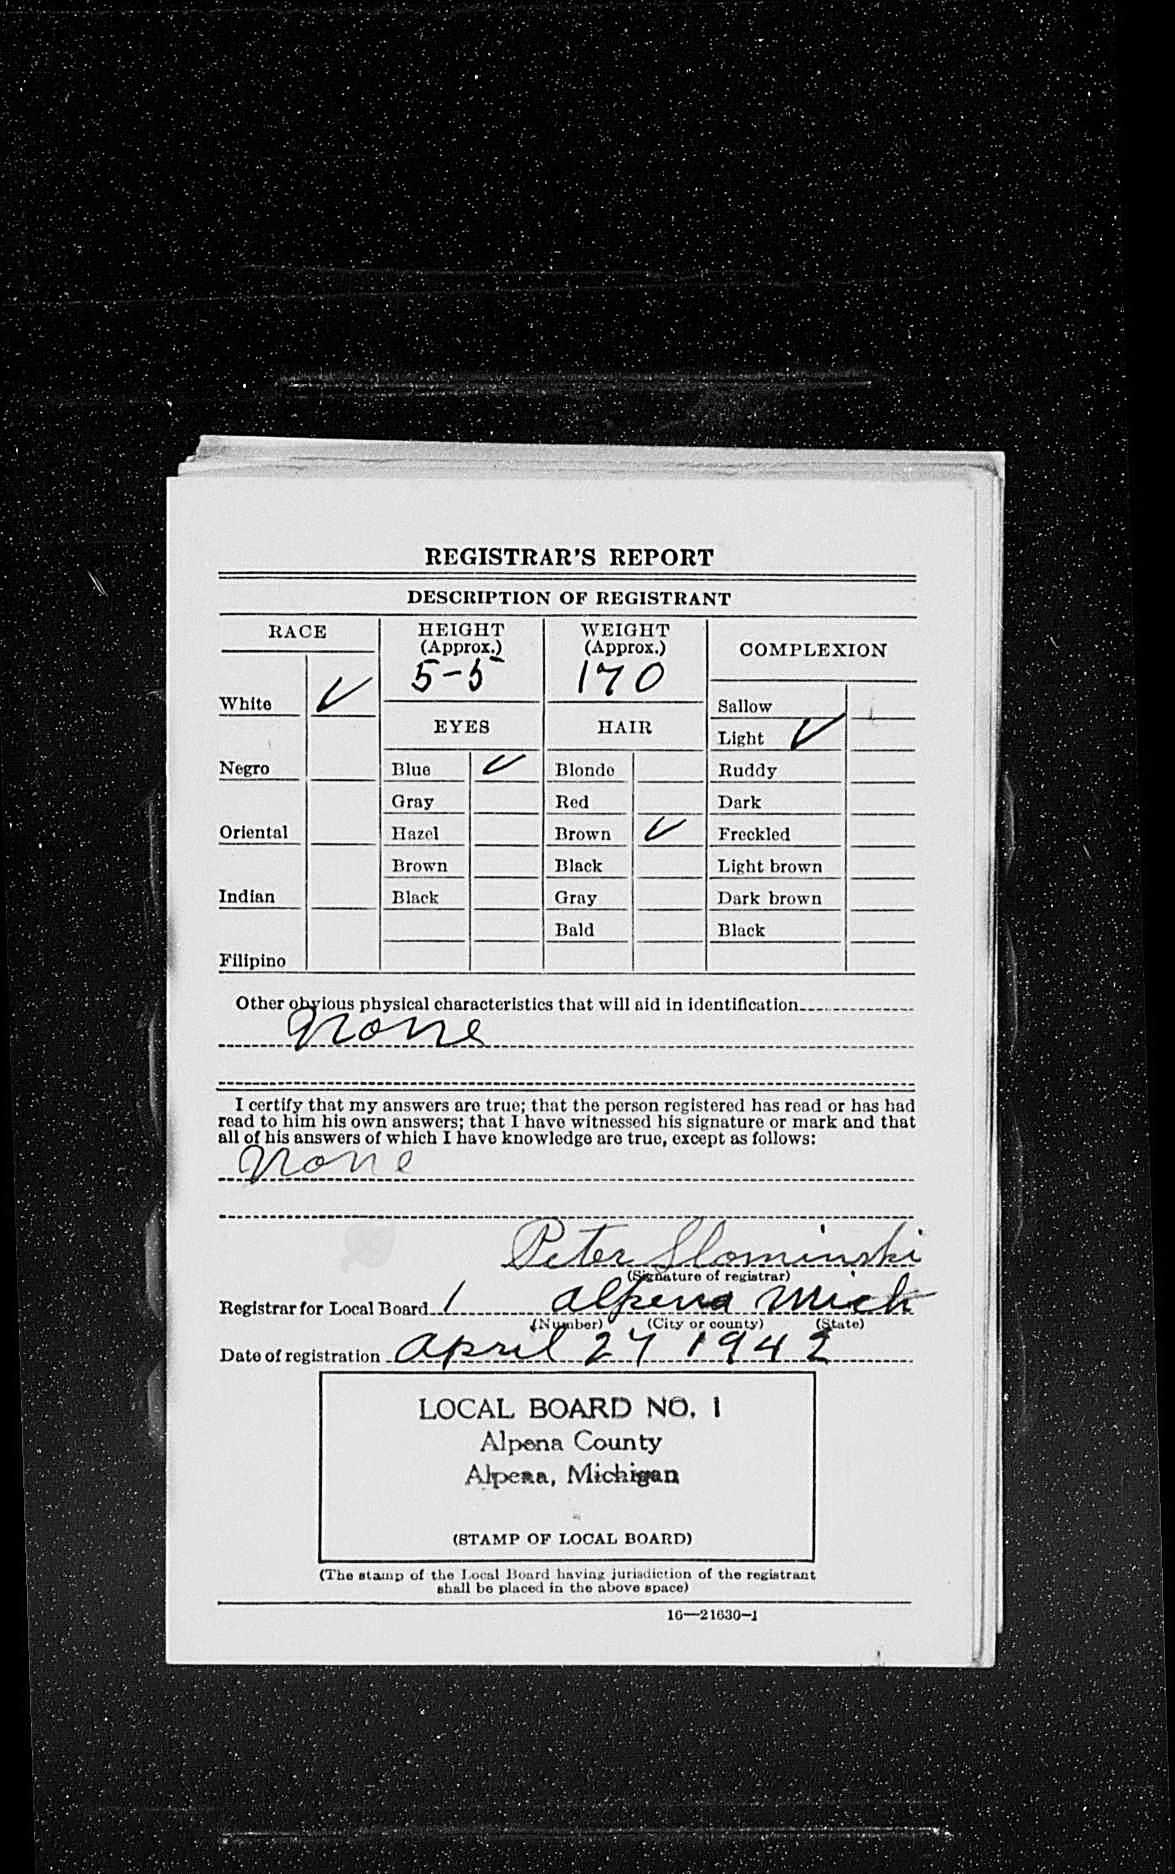 REGISTRAR'S REPORT
DESCRIPTION OF REGISTRANT
RACE
HEIGHT
(Approx.)
5-5
WEIGHT
(Approx.)
170
COMPLEXION
White ✓
Negro
Oriental
Indian
Filipino
EYES
Blue ✓
Gray
Hazel
Brown
Black
HAIR
Blonde
Red
Brown ✓
Black
Gray
Bald
Sallow
Light ✓
Ruddy
Dark
Freckled
Light brown
Dark brown
Black
Other obvious physical characteristics that will aid in identification
None
I certify that my answers are true; that the person registered has read or has had
read to him his own answers; that I have witnessed his signature or mark and that
all of his answers of which I have knowledge are true, except as follows:
None
Peter Slominski
(Signature of registrar)
Registrar for Local Board 1 Alpena Mich
(Number) (City or county) (State)
Date of registration April 27 1942
LOCAL BOARD NO. 1
Alpena County
Alpena, Michigan
(STAMP OF LOCAL BOARD)
(The stamp of the Local Board having jurisdiction of the registrant
shall be placed in the above space)
16—21630-1